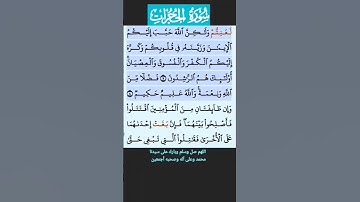 سُورَةُ الحُجُرَاتِ
لَعَنِتُّمْ وَلَٰكِنَّ ٱللَّهَ حَبَّبَ إِلَيْكُمُ
ٱلْإِيمَٰنَ وَزَيَّنَهُۥ فِى قُلُوبِكُمْ وَكَرَّهَ
إِلَيْكُمُ ٱلْكُفْرَ وَٱلْفُسُوقَ وَٱلْعِصْيَانَ
أُو۟لَٰٓئِكَ هُمُ ٱلرَّٰشِدُونَ ۝٧ فَضْلًا مِّنَ
ٱللَّهِ وَنِعْمَةً وَٱللَّهُ عَلِيمٌ حَكِيمٌ ۝٨
وَإِن طَآئِفَتَانِ مِنَ ٱلْمُؤْمِنِينَ ٱقْتَتَلُوا۟
فَأَصْلِحُوا۟ بَيْنَهُمَا فَإِنۢ بَغَتْ إِحْدَىٰهُمَا
عَلَى ٱلْأُخْرَىٰ فَقَٰتِلُوا۟ ٱلَّتِى تَبْغِى حَتَّىٰ
اللهم صل وسلم وبارك على سيدنا
محمد وعلى آله وصحبه أجمعين